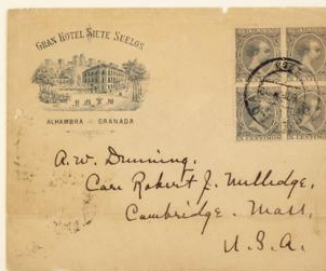 GRAN HOTEL SIETE SUELOS
ALHAMBRA - GRANADA
A. W. Drinning,
Care Robert J. Millidge,
Cambridge. Mass.
U. S. A.